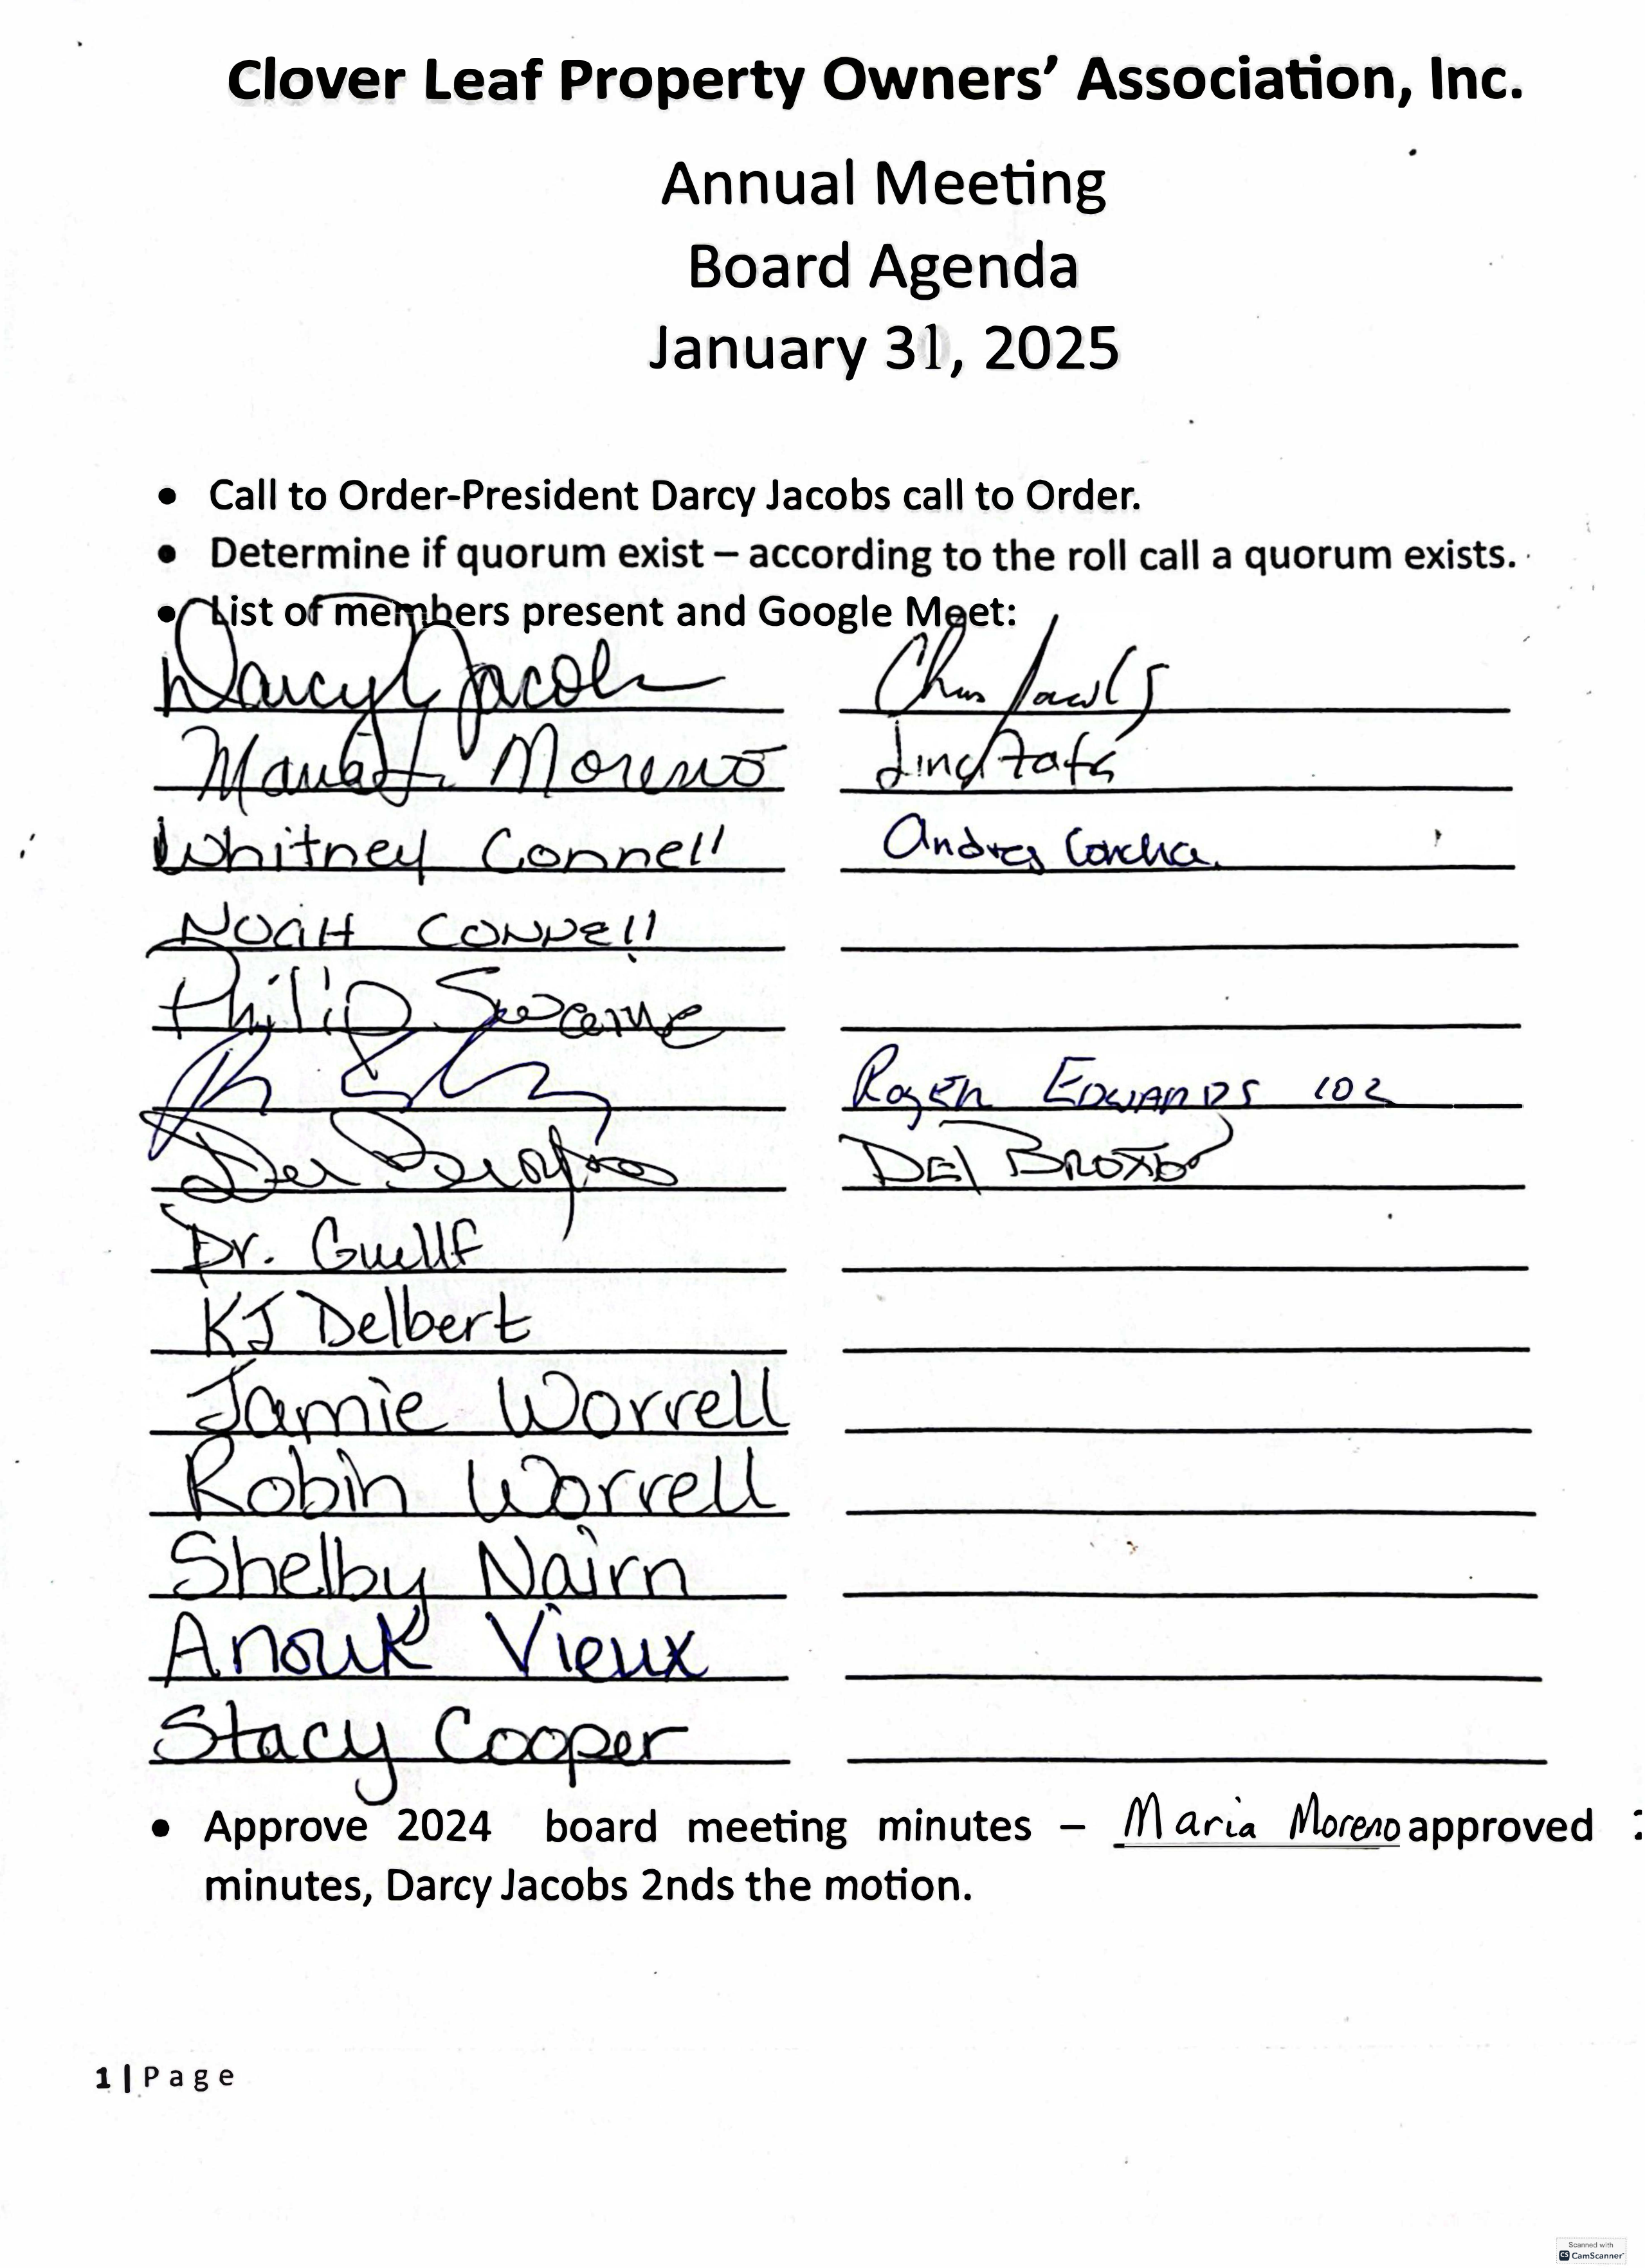 Clover Leaf Property Owners' Association, Inc.
Annual Meeting
Board Agenda
January 31, 2025
• Call to Order-President Darcy Jacobs call to Order.
• Determine if quorum exist – according to the roll call a quorum exists.
• List of members present and Google Meet:
Darcy Jacobs Chris
Moreno
Whitney Connell Andres
NOAH CONNell
Philip
Roger EDWARDS 102
DEl
Dr. Guellf
KJ Delbert
Jamie Worrell
Robin Worrell
Shelby Nairn
Anouk Vieux
Stacy Cooper
• Approve 2024 board meeting minutes – Maria Moreno approved
minutes, Darcy Jacobs 2nds the motion.
1 | Page
Scanned with
CS CamScanner